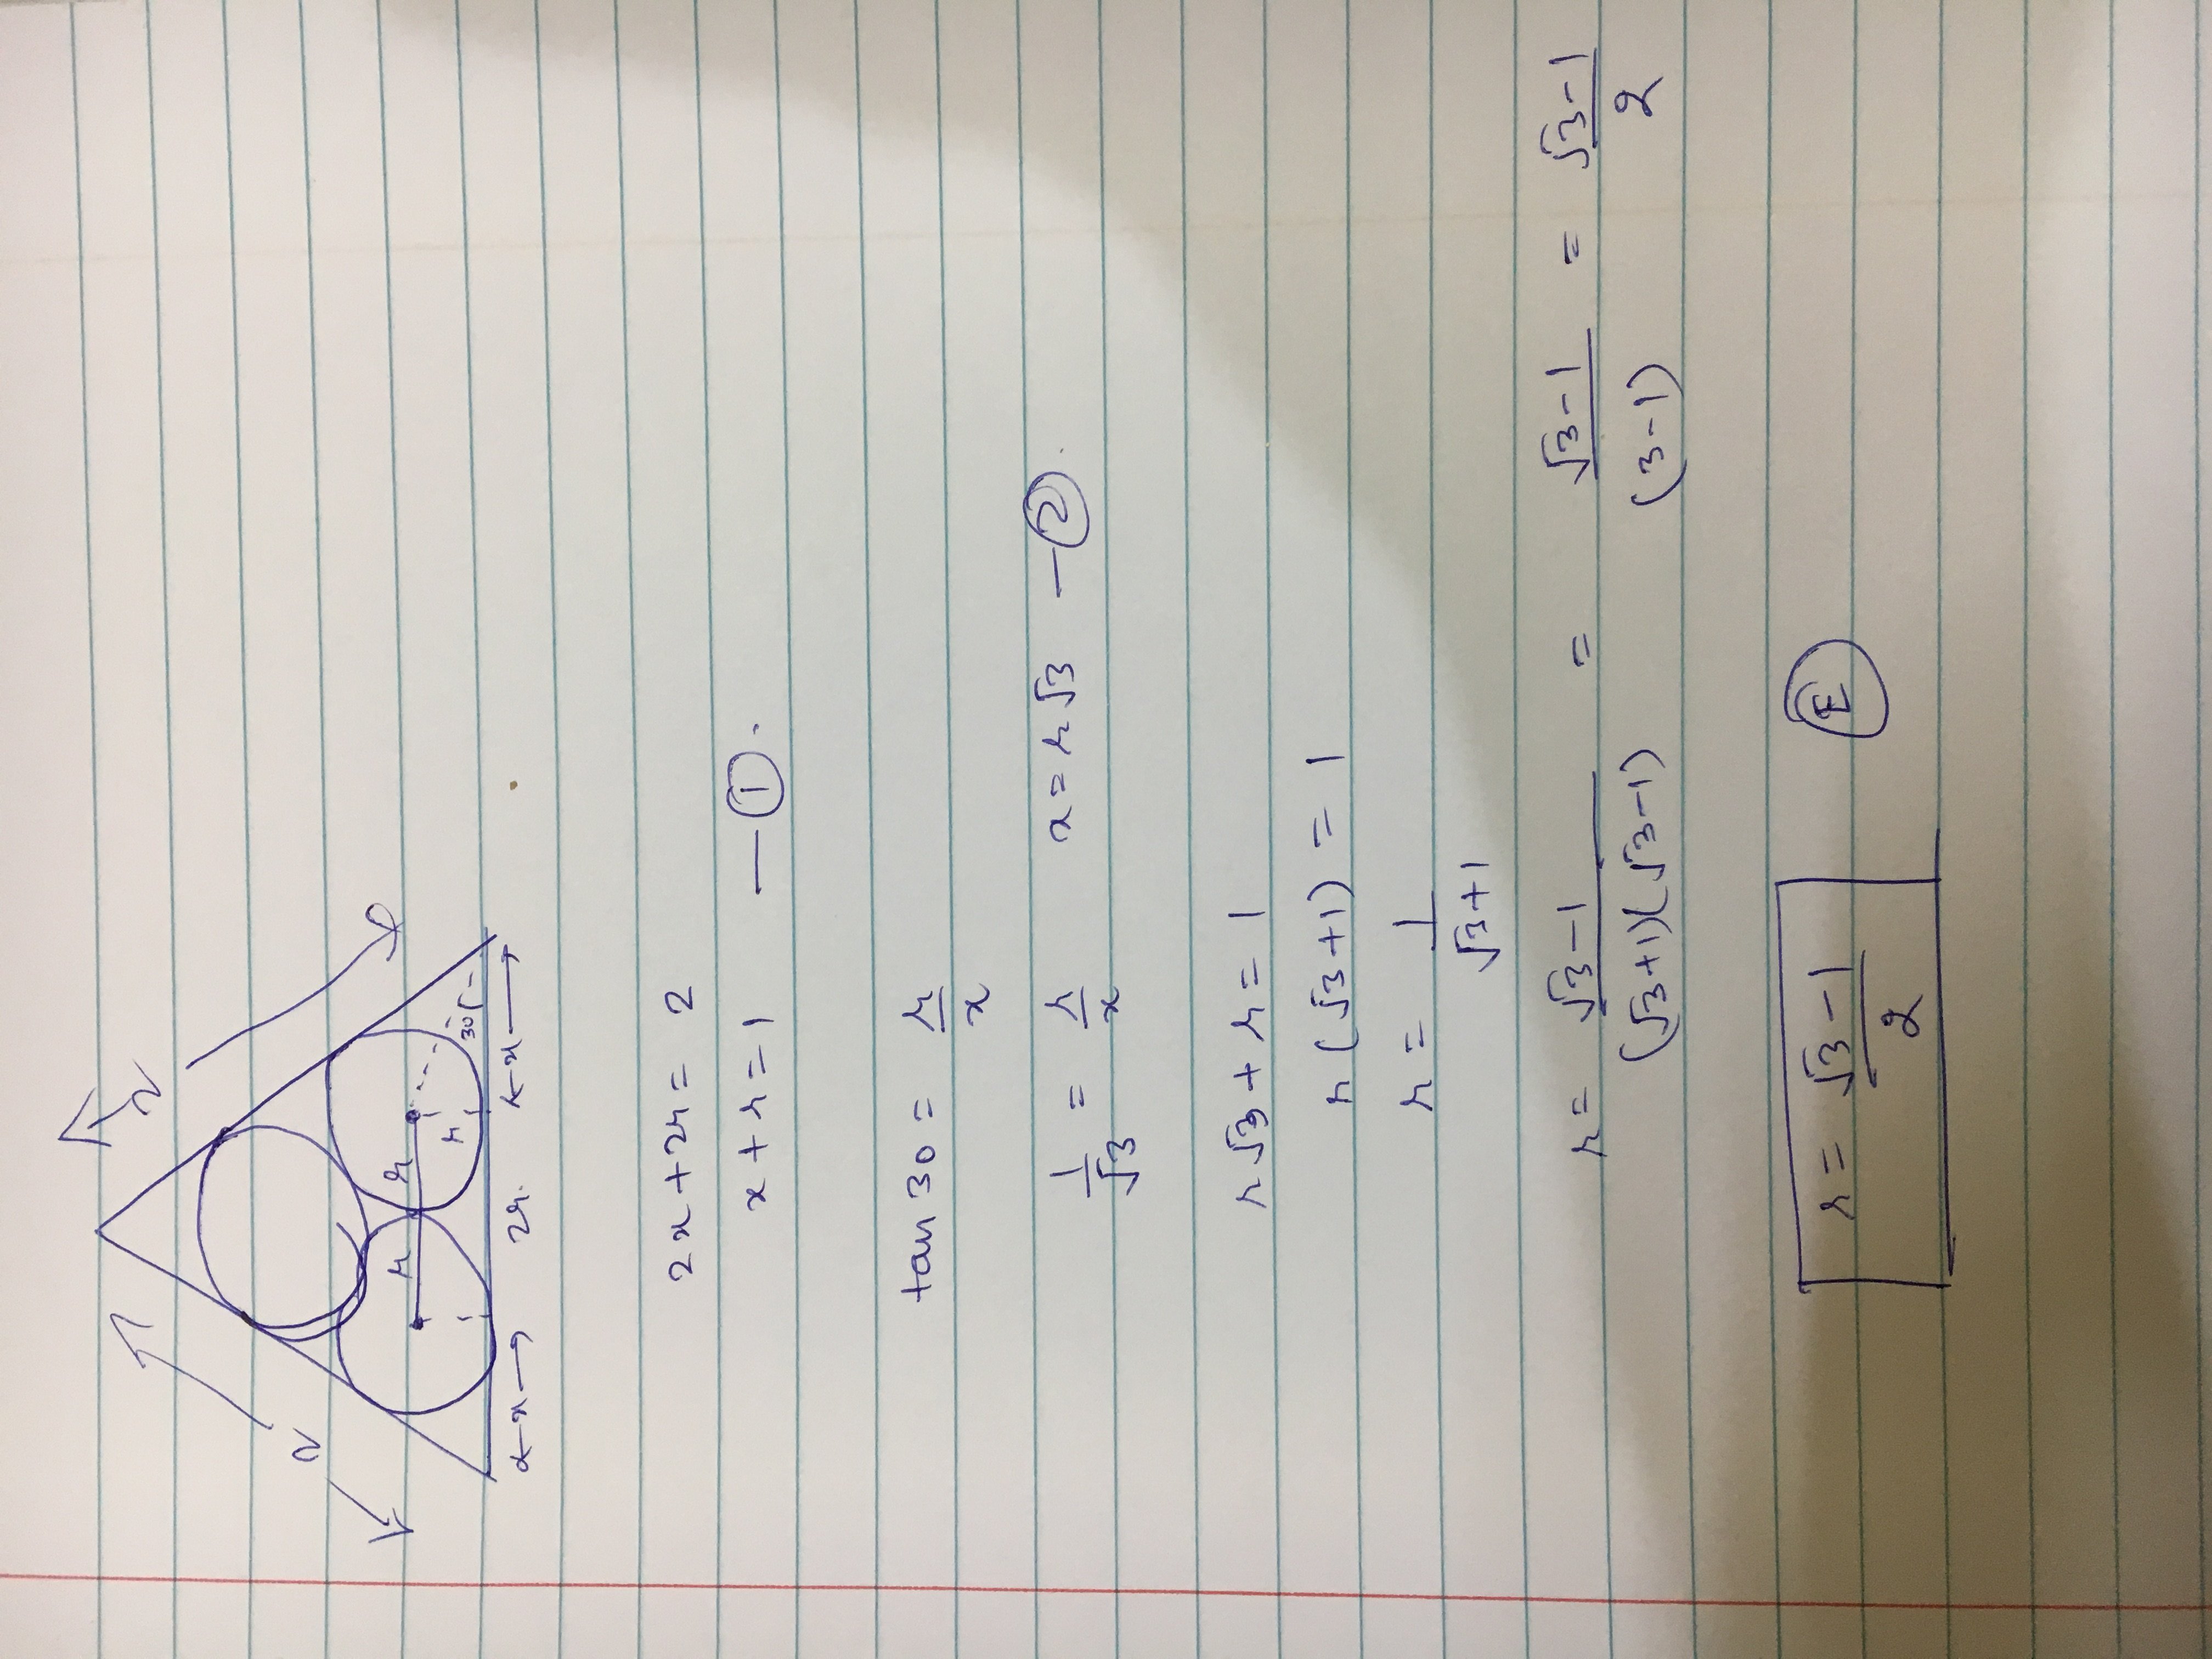 2
2
r r
r
30°
x 2r. x
2x + 2r = 2
x + r = 1 — ①.
tan 30 = r/x
1/√3 = r/x x = r√3 — ②.
r√3 + r = 1
r(√3+1) = 1
r = 1/√3+1
r = √3-1/(√3+1)(√3-1) = √3-1/(3-1) = √3-1/2
r = √3-1/2 Ⓔ